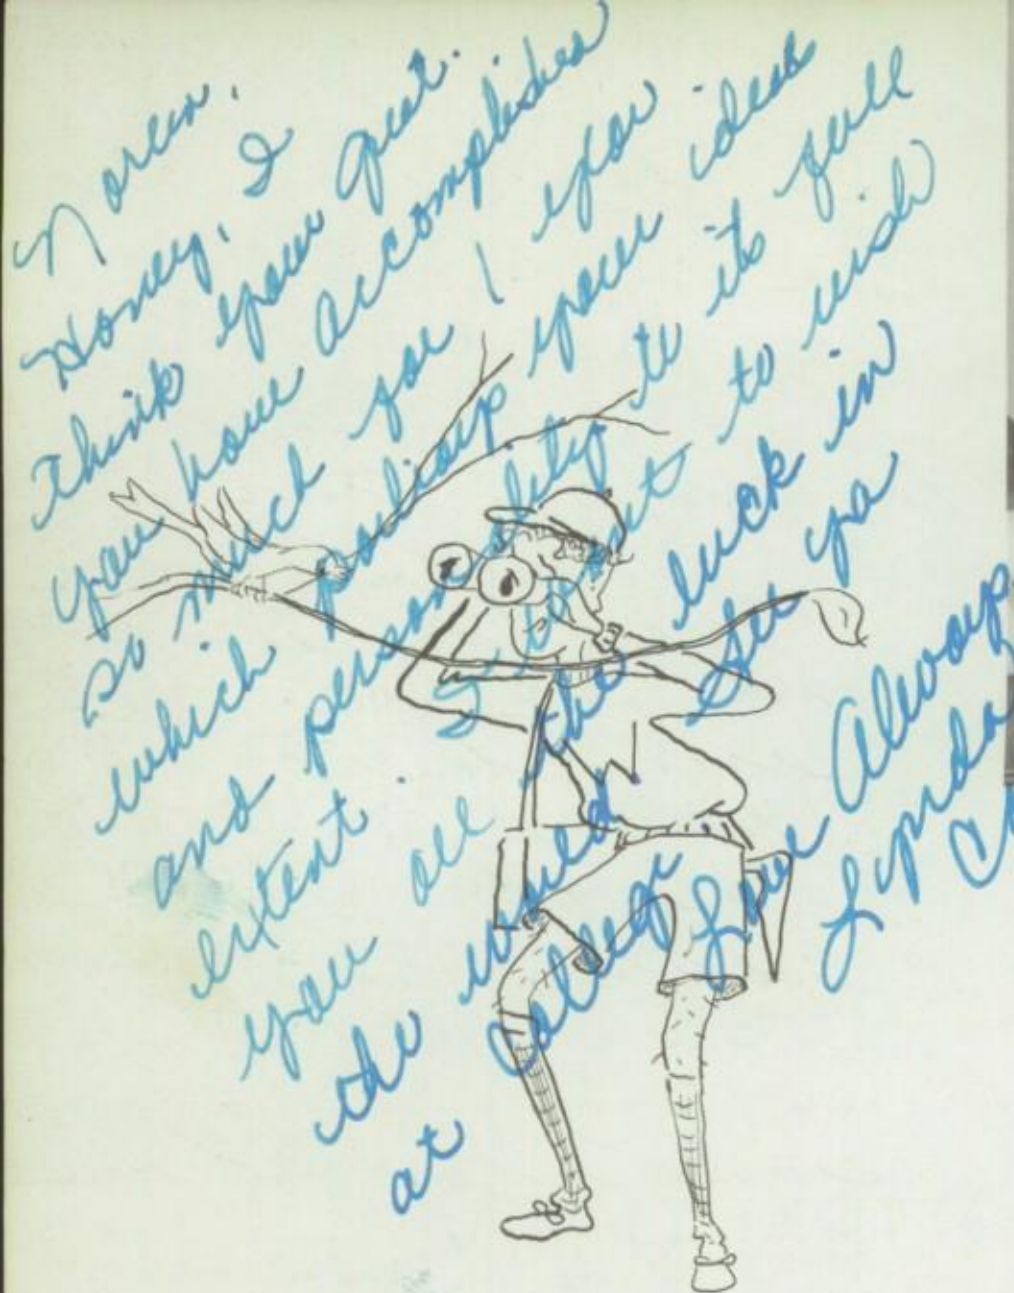 Noren,
Honey, I
think your great.
you have accomplished
so much for you
which your ideas
and personality to its full
extent. I want to wish
you all the luck in
the world. See ya
at College Love Always
Lynda